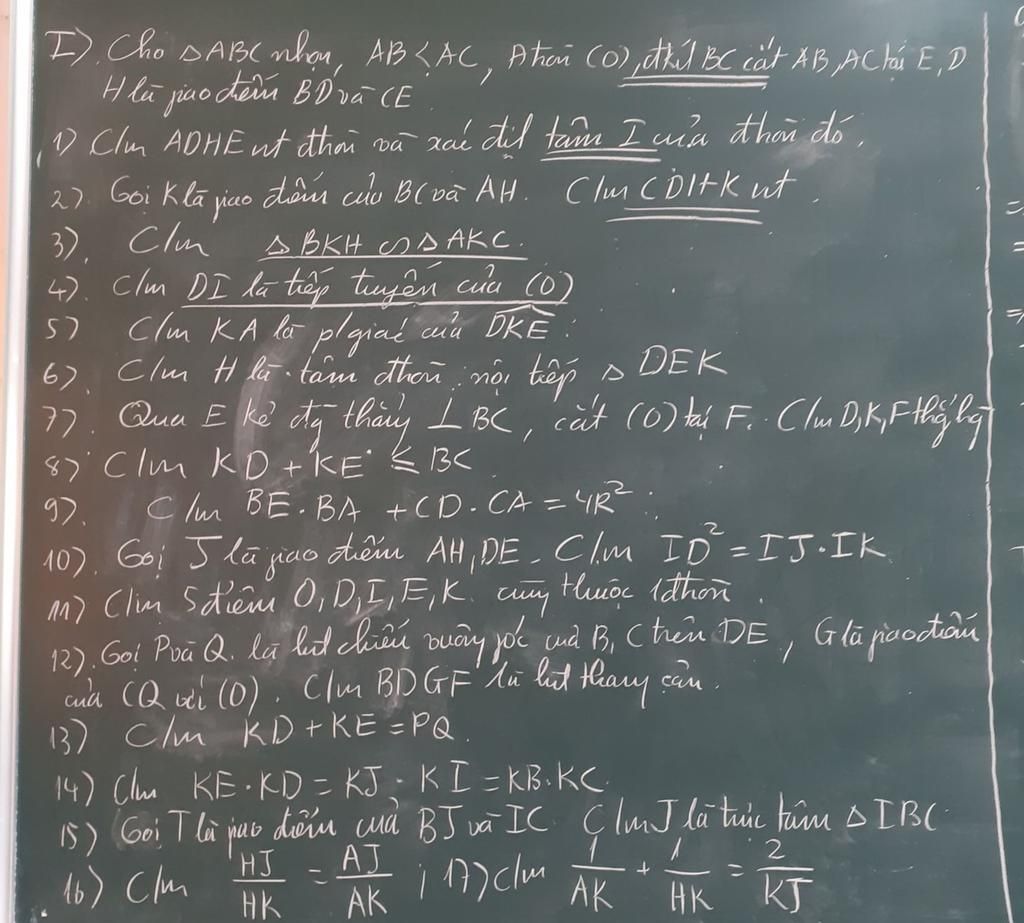 I). Cho △ABC nhọn, AB < AC, Đtròn (O), đkíl BC cắt AB, AC tại E, D
H là giao điểm BD và CE.
1) C/m ADHE nt đtròn và xác địl tâm I của đtròn đó.
2). Gọi K là giao điểm của BC và AH. C/m CDHK nt.
3). C/m △BKH ∽ △AKC.
4). C/m DI là tiếp tuyến của (O)
5) C/m KA là p/giác của DKE.
6). C/m H là tâm đtròn nội tiếp △ DEK
7). Qua E kẻ đg thẳng ⊥ BC, cắt (O) tại F. C/m D, K, F thg hg
8) C/m KD + KE ≤ BC
9). C/m BE . BA + CD . CA = 4R²
10). Gọi J là giao điểm AH, DE. C/m ID² = IJ . IK
11) C/m 5 điểm O, D, I, E, K cùng thuộc 1 đtròn.
12). Gọi P và Q là hìl chiếu vuông góc của B, C trên DE, G là giao điểm
của CQ với (O). C/m BDGF là hìl thang cân.
13) C/m KD + KE = PQ.
14) C/m KE . KD = KJ . KI = KB . KC.
15) Gọi T là giao điểm của BJ và IC. C/m J là trực tâm △ IBC
16) C/m HJ/HK = AJ/AK ; 17) C/m 1/AK + 1/HK = 2/KJ